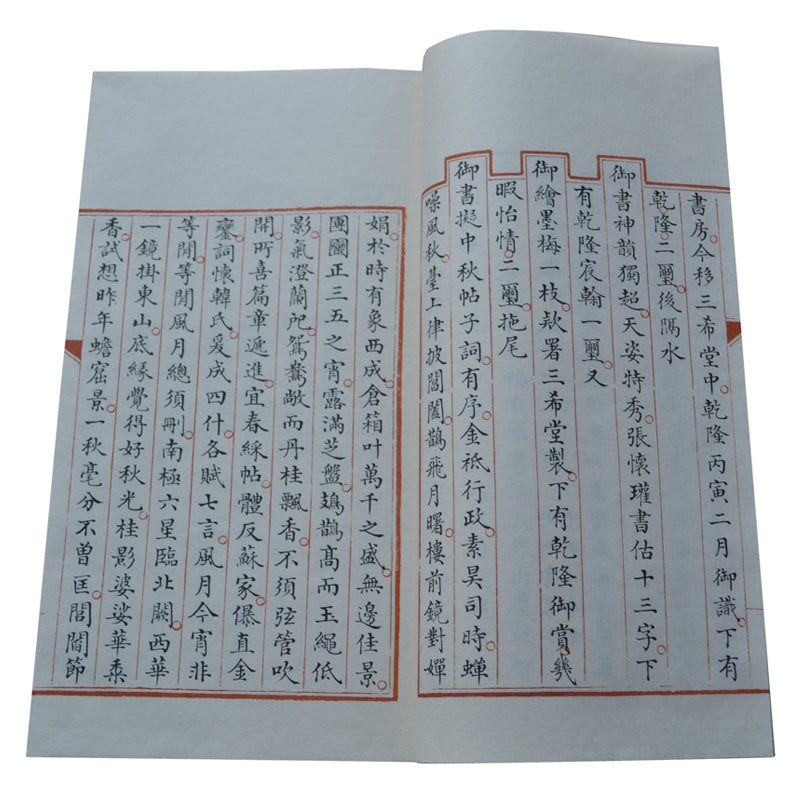 書房。今移三希堂中。乾隆丙寅二月御識。下有
乾隆。二璽。後隔水
御書神韻獨超。天姿特秀。張懷瓘書估十三字。下
有乾隆宸翰一璽。又
御繪墨梅一枝。款署三希堂製。下有乾隆御賞。幾
暇怡情。二璽。拖尾
御書擬中秋帖子詞。有序。金祗行政。素昊司時。蟬
噪風秋。臺上津披閶闔。鵲飛月曙。樓前鏡對嬋
娟。於時有象西成。倉箱叶萬千之盛。無邊佳景。
團圞正三五之宵。露滿芝盤。鳷鵲高而玉繩低
影。氣澄蘭戺。鴛鴦敞而丹桂飄香。不須弦管吹
開。所喜篇章遞進。宜春綵帖。體反蘇家。儤直金
鑾。詞懷韓氏。爰成四什。各賦七言。風月今宵非
等閒。等閒風月總須刪。南極六星臨北闕。西華
一鏡掛東山。底緣覺得好秋光。桂影婆娑華桼
香。試想昨年蟾窟景。一秋毫分不曾匡。閭閻節